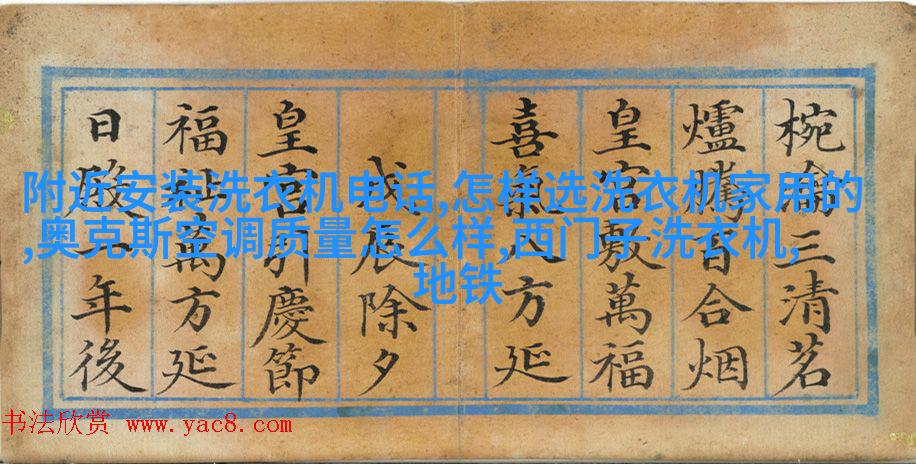 椀三清茗
爐騰百合烟
皇宮敷萬福
喜氣八方延
戊辰除夕
皇宮引慶節
福祉萬方延
日年後
附近安装洗衣机电话,怎样选洗衣机家用的
,奥克斯空调质量怎么样,西门子洗衣机,
地铁
书法欣赏 www.yac8.com